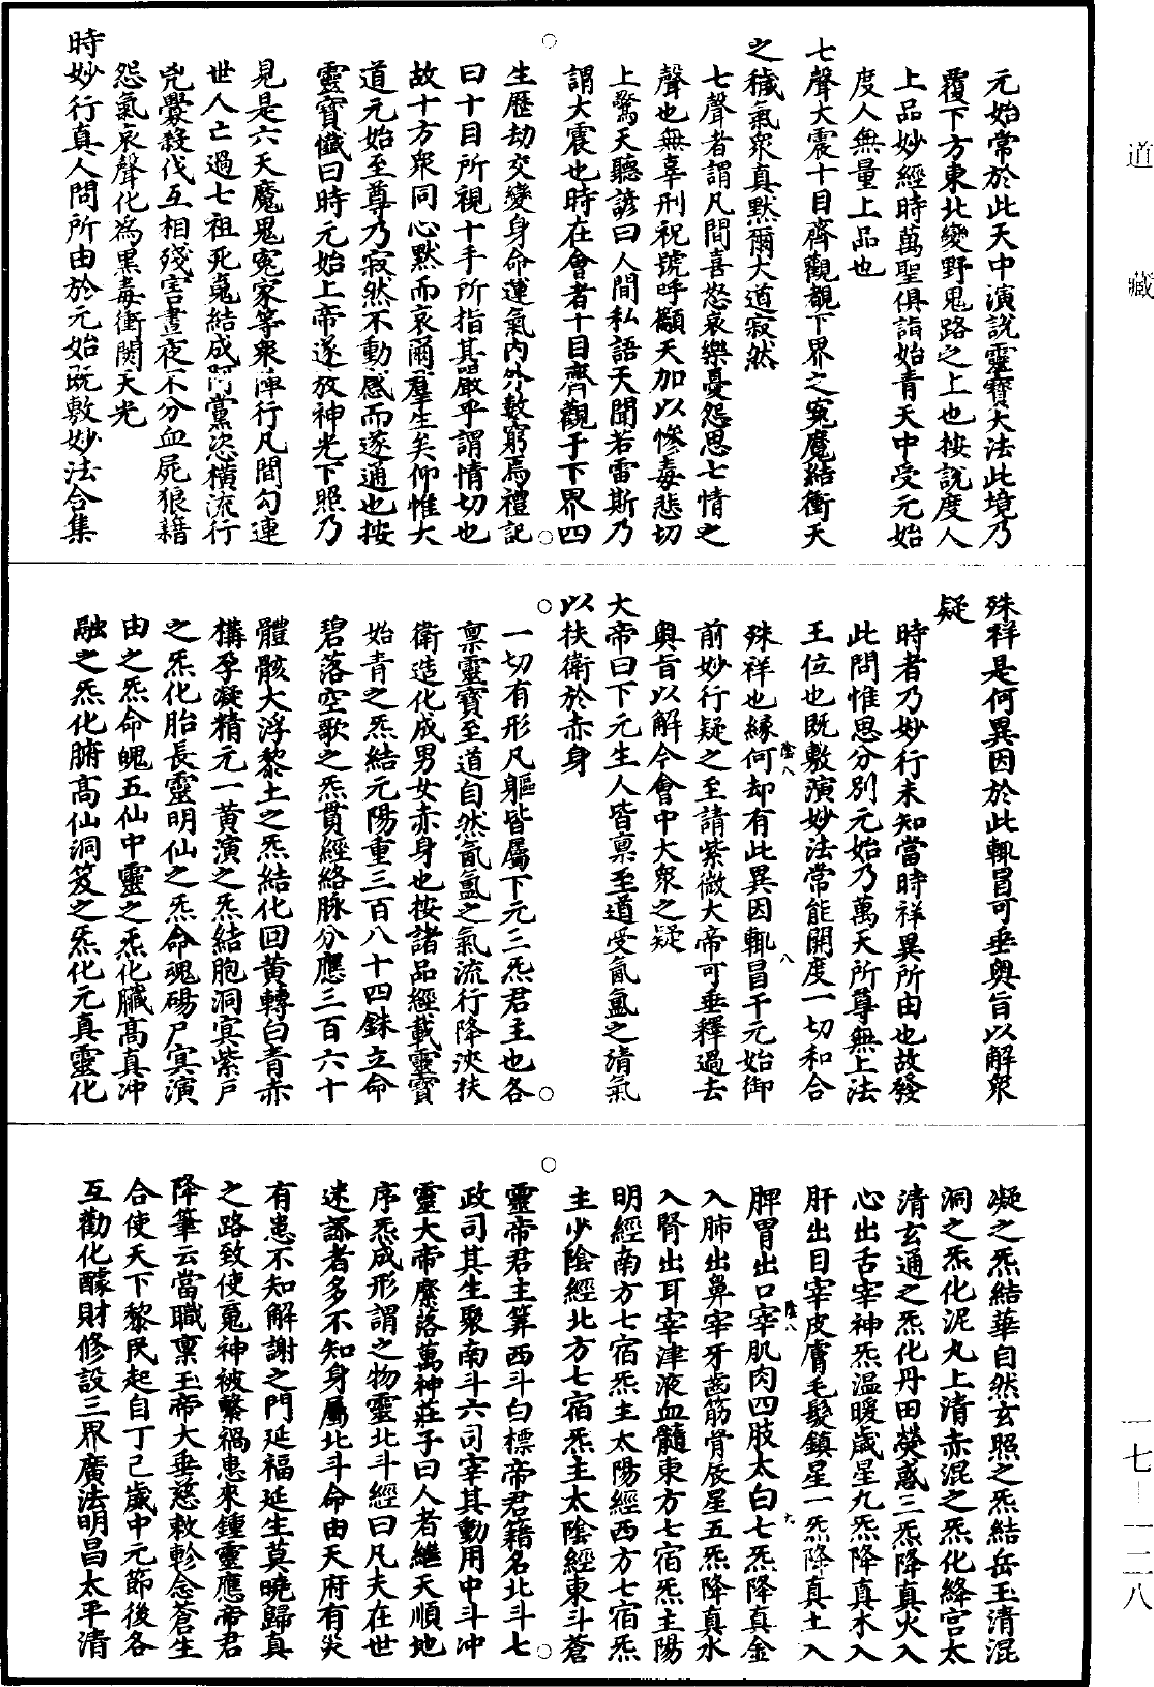 道藏
一七—一二八
元始常於此天中演說靈寶大法此境乃
覆下方東北變野鬼路之上也按說度人
上品妙經時萬聖俱詣始青天中受元始
度人無量上品也
七聲大震十目齊觀覩下界之寃魔結衝天
之穢氣衆真黙爾大道寂然
七聲者謂凡間喜怒哀樂憂怨思七情之
聲也無辜刑祝號呼籲天加以慘毒悲切
上驚天聽諺曰人間私語天聞若雷斯乃
謂大震也時在會者十目齊觀于下界四
生歷劫交變身命運氣內外數窮焉禮記
曰十目所視十手所指其嚴乎謂情切也
故十方衆同心黙而哀爾羣生矣仰惟大
道元始至尊乃寂然不動感而遂通也按
靈寶懺曰時元始上帝遂放神光下照乃
見是六天魔鬼寃家等衆陣行凡間勾連
世人亡過七祖死鬼結成阿黨恣橫流行
兇釁殺伐互相殘害晝夜不分血屍狼籍
怨氣哀聲化爲黑毒衝闕天光
時妙行真人問所由於元始既敷妙法合集
殊祥是何異因於此輙冒可垂奧旨以解衆
疑
時者乃妙行未知當時祥異所由也故發
此問惟思分別元始乃萬天所尊無上法
王位也既敷演妙法常能開度一切和合
殊祥也緣何却有此異因輙冒干元始御
前妙行疑之至請紫微大帝可垂釋過去
奧旨以解今會中大衆之疑
大帝曰下元生人皆禀至道受氤氳之清氣
以扶衛於赤身
一切有形凡軀皆屬下元三炁君主也各
禀靈寶至道自然氤氳之氣流行降浹扶
衛造化成男女赤身也按諸品經載靈寶
始青之炁結元陽重三百八十四銖立命
碧落空歌之炁貫經絡脉分應三百六十
體骸大浮黎土之炁結化回黄轉白青赤
構孕凝精元一黄演之炁結胞洞冥紫戶
之炁化胎長靈明仙之炁命魂碭尸冥演
由之炁命魄五仙中靈之炁化臟高真冲
融之炁化腑高仙洞笈之炁化元真靈化
凝之炁結華自然玄照之炁結岳玉清混
洞之炁化泥丸上清赤混之炁化絳宮太
清玄通之炁化丹田熒惑三炁降真火入
心出舌宰神炁温暖歲星九炁降真木入
肝出目宰皮膚毛髮鎮星一炁降真土入
脾胃出口宰肌肉四肢太白七炁降真金
入肺出鼻宰牙齒筋骨辰星五炁降真水
入腎出耳宰津液血髓東方七宿炁主陽
明經南方七宿炁主太陽經西方七宿炁
主少陰經北方七宿炁主太陰經東斗蒼
靈帝君主算西斗白標帝君籍名北斗七
政司其生聚南斗六司宰其動用中斗冲
靈大帝縻落萬神莊子曰人者繼天順地
序炁成形謂之物靈北斗經曰凡夫在世
迷謬者多不知身屬北斗命由天府有災
有患不知解謝之門延福延生莫曉歸真
之路致使䰟神被繫禍患來鍾靈應帝君
降筆云當職禀玉帝大垂慈敕軫念蒼生
合使天下黎民起自丁己歲中元節後各
互勸化醵財修設三界廣法明昌太平清
陰八
八
陰八
六